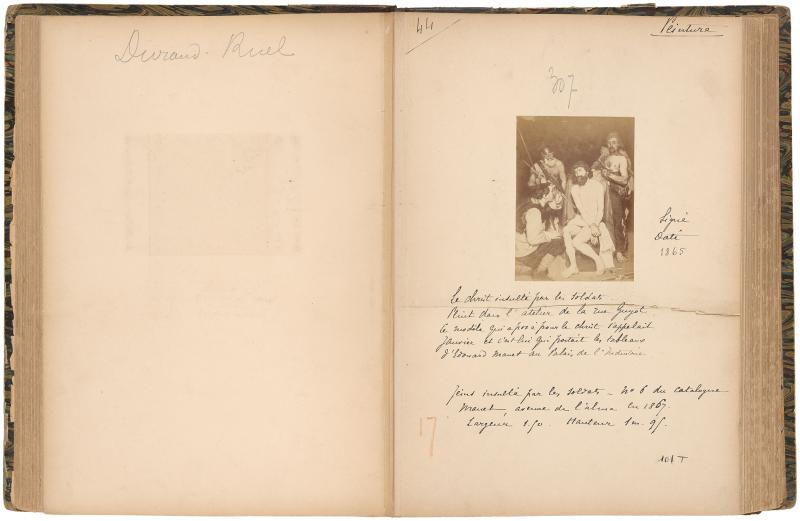 Durand-Ruel
44
Peinture
307
Signé
Daté
1865
Le Christ insulté par les soldats.
Peint dans l'atelier de la rue Guyot
Le modèle qui a posé pour le christ s'appelait
Janvier et c'est lui qui portait les tableaux
d'Edouard Manet au Palais de l'Industrie
Jésus insulté par les soldats - No 6 du catalogue
Manet, avenue de l'alma en 1867.
Largeur 1.50. Hauteur 1m. 95.
17
101 T